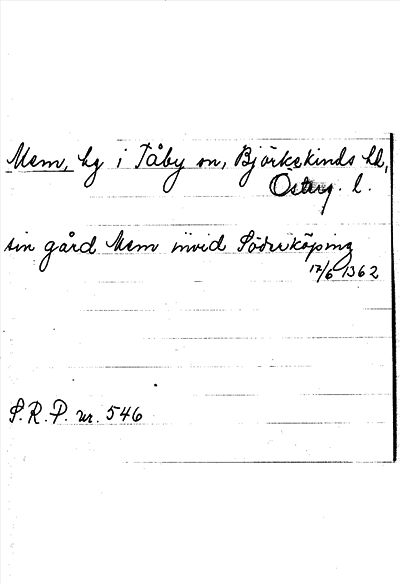 Mem, hg i Tåby sn, Björkekinds hd,
Österg. l.
sin gård Mem invid Söderköping
17/6 1362
S.R.P. nr. 546